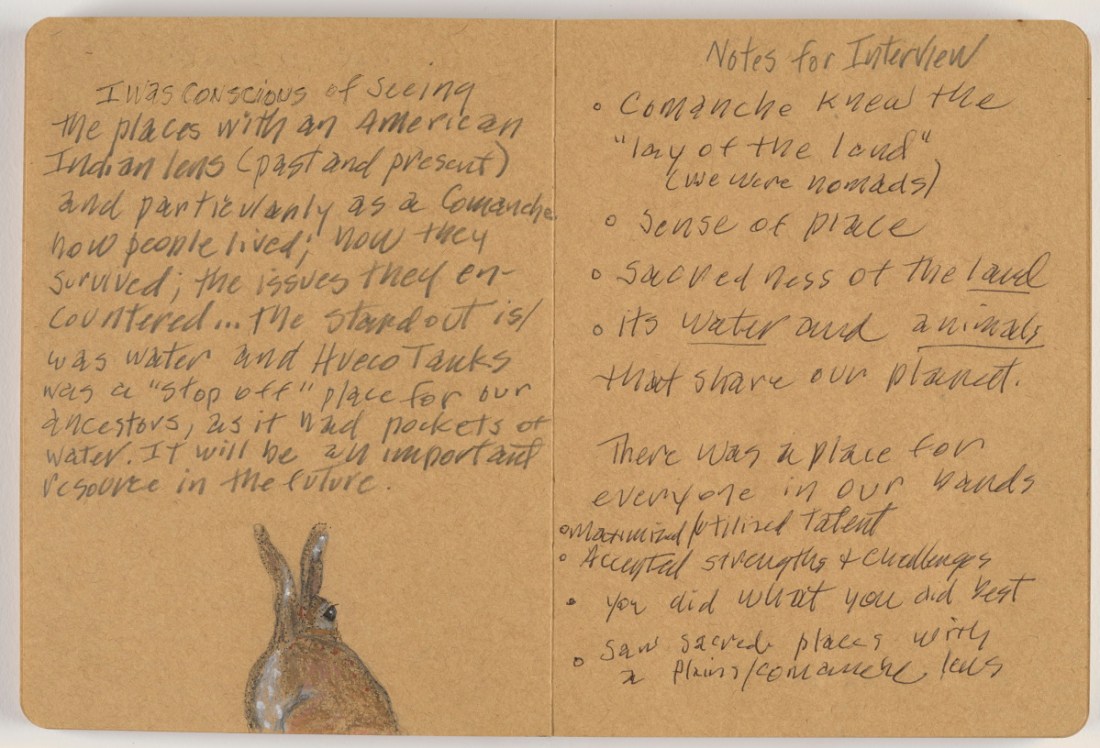 I was conscious of seeing
the places with an American
Indian lens (past and present)
and particularly as a Comanche.
how people lived; how they
survived; the issues they en-
countered... the standout is/
was water and Hueco Tanks
was a "stop off" place for our
ancestors, as it had pockets of
water. It will be an important
resource in the future.
Notes for Interview
◦ Comanche knew the
"lay of the land"
(we were nomads)
◦ Sense of place
◦ Sacredness of the land
◦ its water and animals
that share our planet.
There was a place for
everyone in our bands
◦ Maximized/utilized talent
◦ Accepted strengths + challenges
• you did what you did best
◦ saw sacred places with
a Plains/Comanche lens